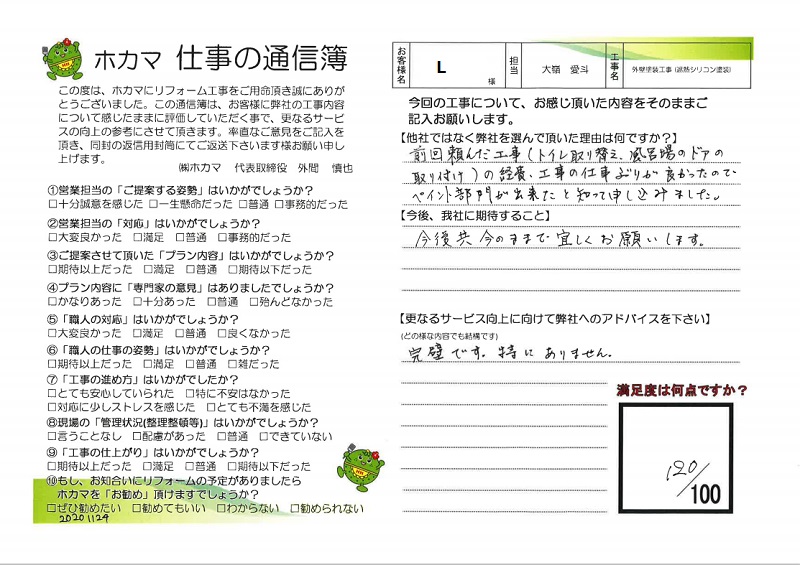 ホカマ 仕事の通信簿
この度は、ホカマにリフォーム工事をご用命頂き誠にありが
とうございました。この通信簿は、お客様に弊社の工事内容
について感じたままに評価していただく事で、更なるサービ
スの向上の参考にさせて頂きます。率直なご意見をご記入を
頂き、同封の返信用封筒にてご返送下さいます様お願い申し
上げます。
㈱ホカマ 代表取締役 外間 慎也
①営業担当の「ご提案する姿勢」はいかがでしょうか?
□十分誠意を感じた □一生懸命だった □普通 □事務的だった
②営業担当の「対応」はいかがでしょうか?
□大変良かった □満足 □普通 □事務的だった
③ご提案させて頂いた「プラン内容」はいかがでしょうか?
□期待以上だった □満足 □普通 □期待以下だった
④プラン内容に「専門家の意見」はありましたでしょうか?
□かなりあった □十分あった □普通 □殆んどなかった
⑤「職人の対応」はいかがでしょうか?
□大変良かった □満足 □普通 □良くなかった
⑥「職人の仕事の姿勢」はいかがでしょうか?
□期待以上だった □満足 □普通 □雑だった
⑦「工事の進め方」はいかがでしたか?
□とても安心していられた □特に不安はなかった
□対応に少しストレスを感じた □とても不満を感じた
⑧現場の「管理状況(整理整頓等)」はいかがでしょうか?
□言うことなし □配慮があった □普通 □できていない
⑨「工事の仕上がり」はいかがでしょうか?
□期待以上だった □満足 □普通 □期待以下だった
⑩もし、お知合いにリフォームの予定がありましたら
ホカマを「お勧め」頂けますでしょうか?
□ぜひ勧めたい □勧めてもいい □わからない □勧められない
20201129
お客様名 L 様 担当 大嶺 愛斗 工事名 外壁塗装工事(遮熱シリコン塗装)
今回の工事について、お感じ頂いた内容をそのままご
記入お願いします。
【他社ではなく弊社を選んで頂いた理由は何ですか?】
前回頼んだ工事(トイレ取り替え、風呂場のドアの
取り付け)の経費、工事の仕事ぶりが良かったので
ペイント部門が出来たと知って申し込みました。
【今後、我社に期待すること】
今後共今のままで宜しくお願いします。
【更なるサービス向上に向けて弊社へのアドバイスを下さい】
(どの様な内容でも結構です)
完璧です。特にありません。
満足度は何点ですか?
120/100